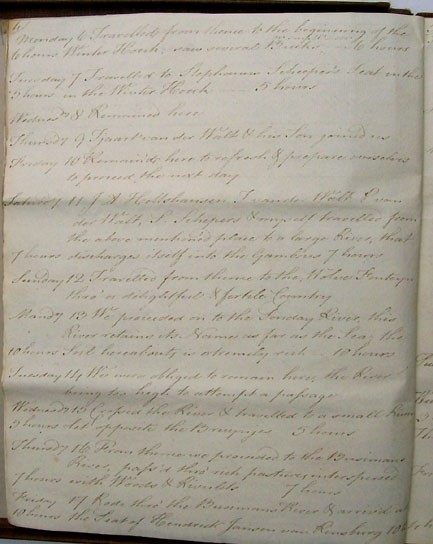 Monday 6 Travelled from thence to the beginning of the
6 hours Winter Hoek, saw several Bucks 6 hours
Tuesday 7 Travelled to Stephanus Scheeper's Seat in the
5 hours in the Winter Hoek 5 hours
Wednesdy 8 Remained here
Thursdy 9 Tjaart van der Walt & his Son joined us
Friday 10 Remained here to refresh & prepare ourselves
to proceed the next day
Saturdy 11 J H Holtshausen, T vander Walt, van
der Walt, S. Schepers & myself travelled from
the above mentioned place to a large River, that
7 hours discharges itself into the Gamtous 7 hours
Sunday 12 Travelled from thence to the Wolve Fonteyn
thro' a delightful & fertile Country
Mondy 13 We proceeded on to the Sunday River, this
River retains its Name as far as the Sea, the
10 hours Soil hereabouts is extremely rich 10 hours
Tuesday 14 We were obliged to remain here, the River
being too high to attempt a passage
Wednesdy 15 Crossed the River & travelled to a small River
5 hours opposite the 5 hours
Thursdy 16 From thence we proceeded to the Busmans
River, pass'd thro' rich pasture, interspersed
7 hours with Woods & Rivulets 7 hours
Friday 17 Rode thro' the Busmans River & arrived at
10 hours the Seat of Hendrik Jansen van Rensburg 10